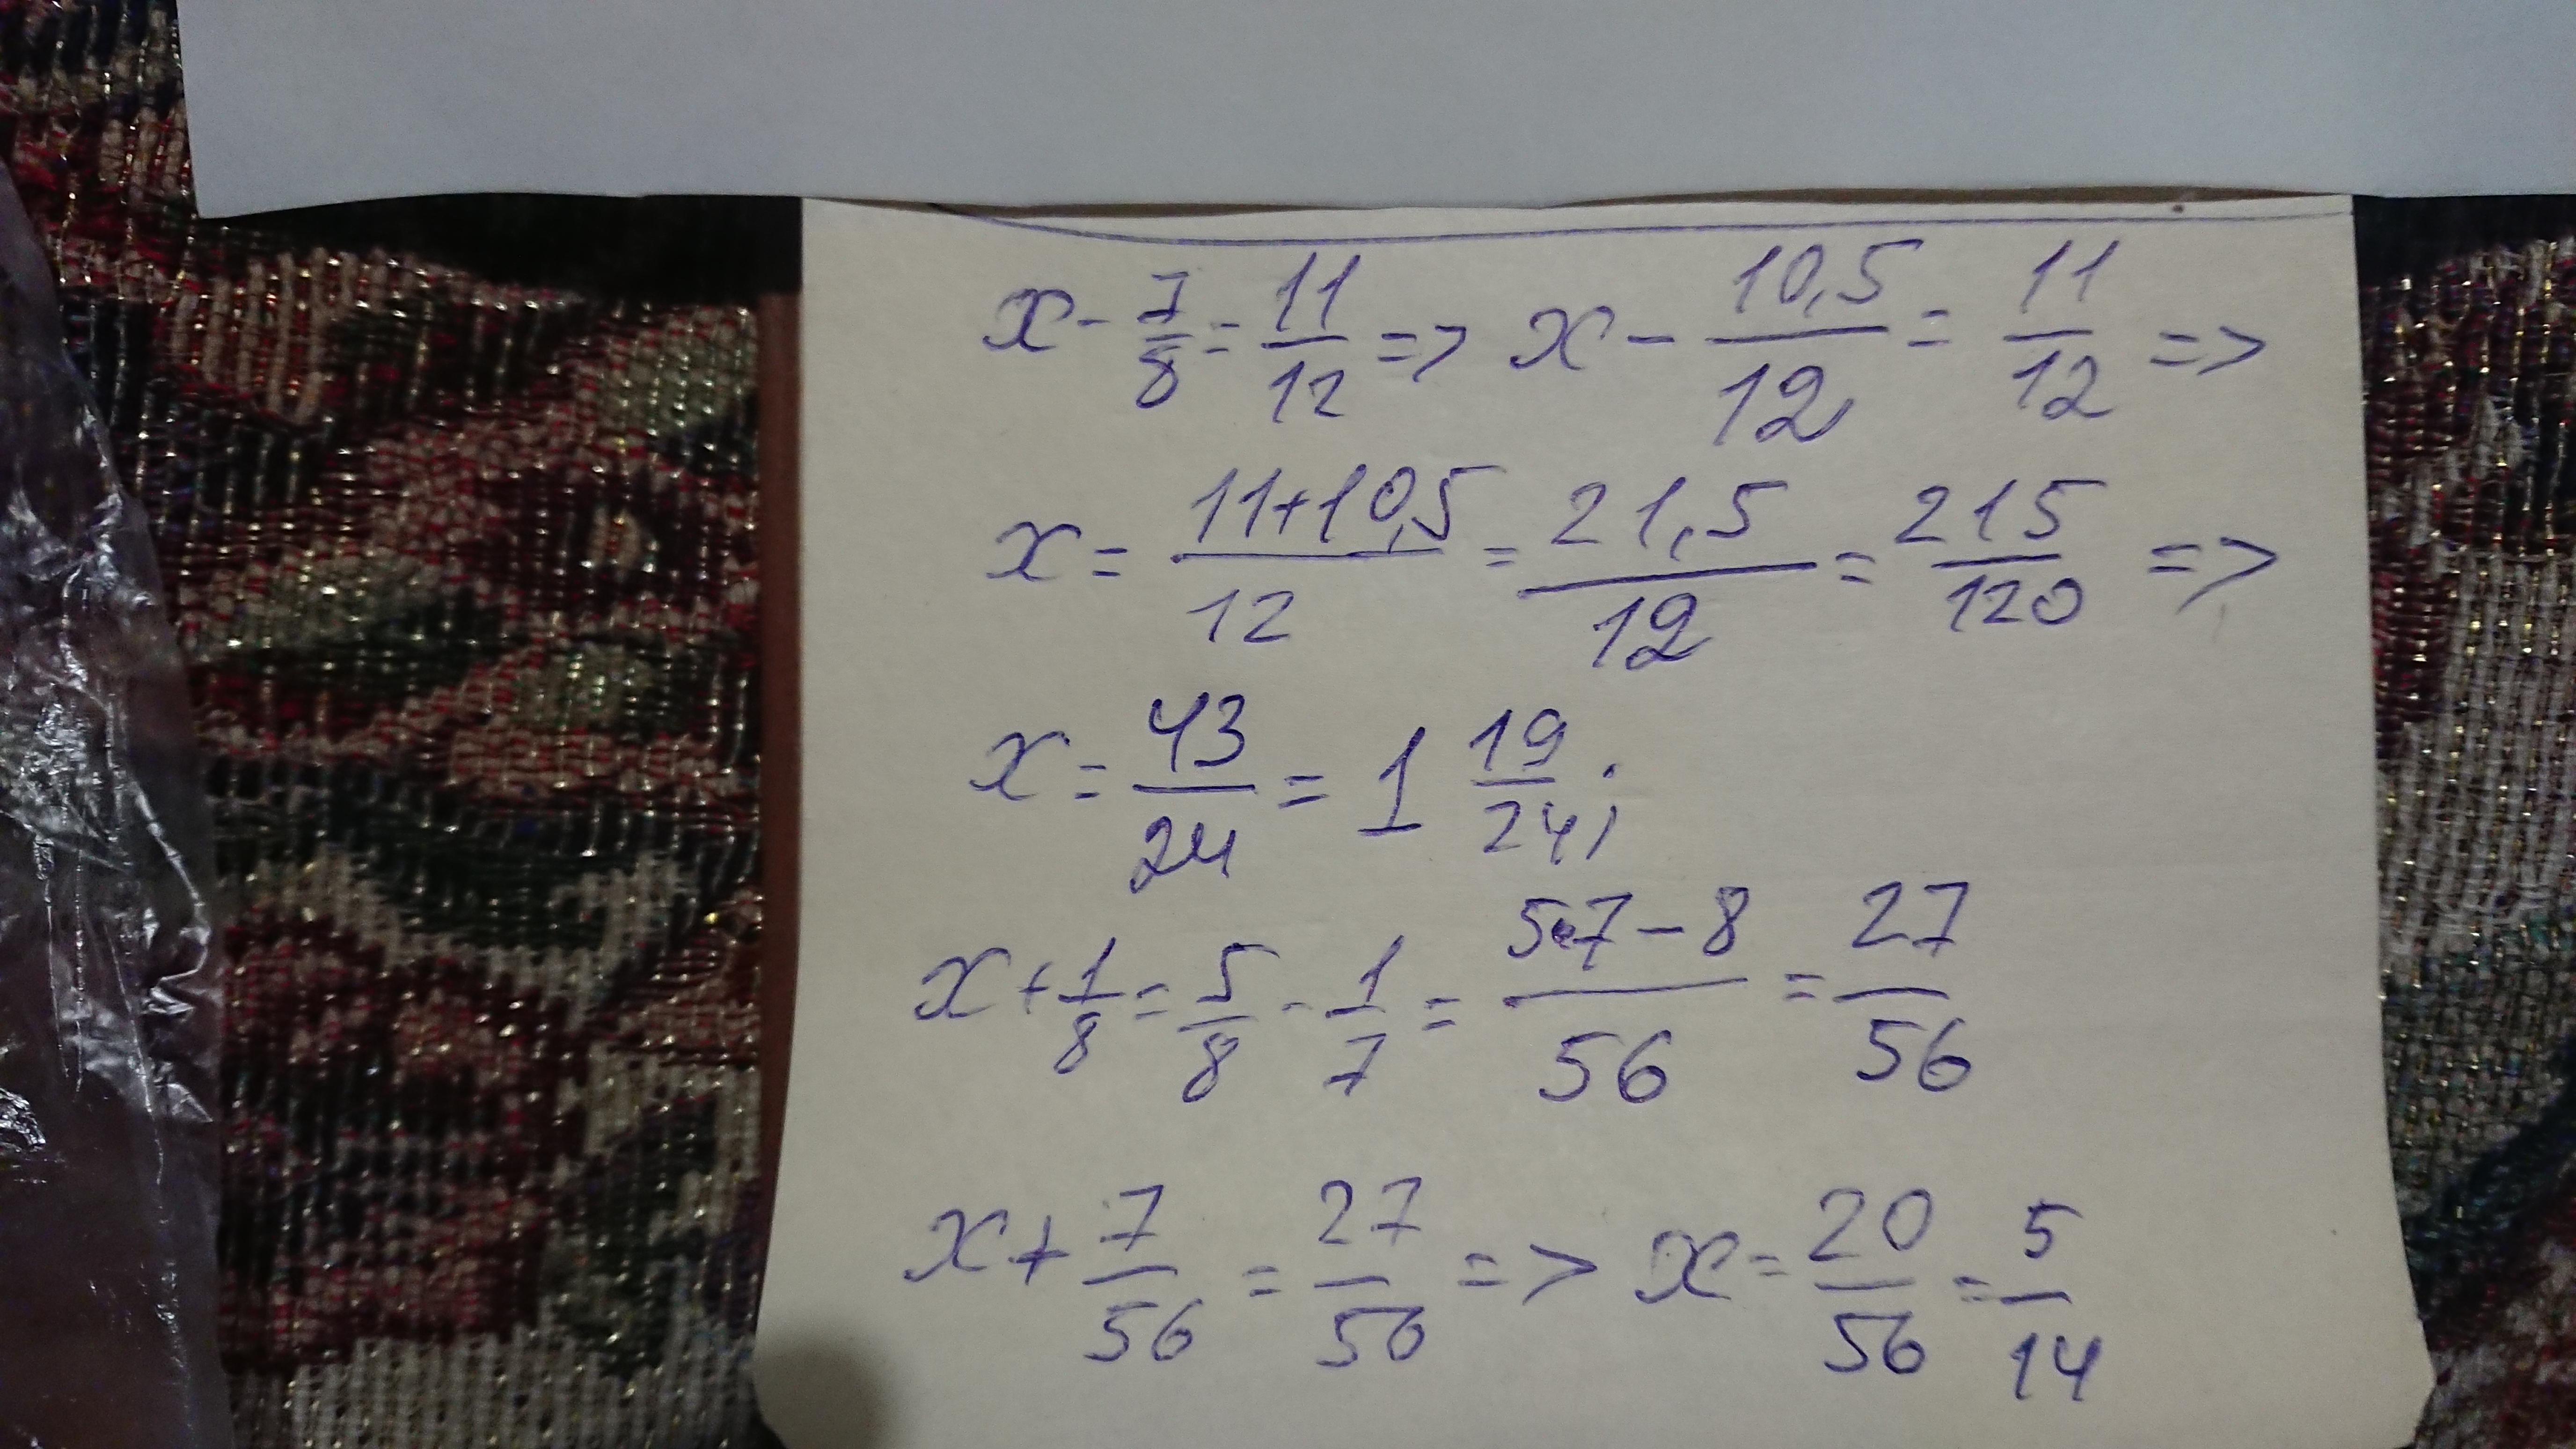 x - 7/8 = 11/12 => x - 10,5/12 = 11/12 =>
x = (11+10,5)/12 = 21,5/12 = 215/120 =>
x = 43/24 = 1 19/24;
x + 1/8 = 5/8 - 1/7 = (5·7-8)/56 = 27/56
x + 7/56 = 27/56 => x = 20/56 = 5/14